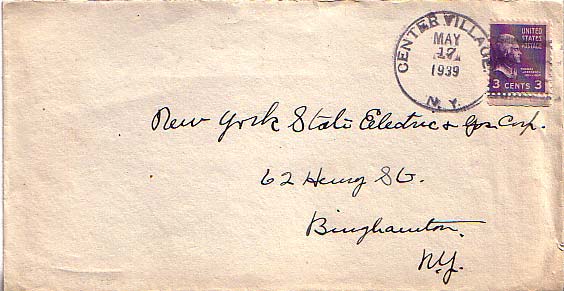 CENTER VILLAGE
MAY
17
1939
N.Y.
UNITED
STATES
POSTAGE
3 CENTS 3
New York State Electric & Gas Corp.
62 Henry St.
Binghamton,
N.Y.